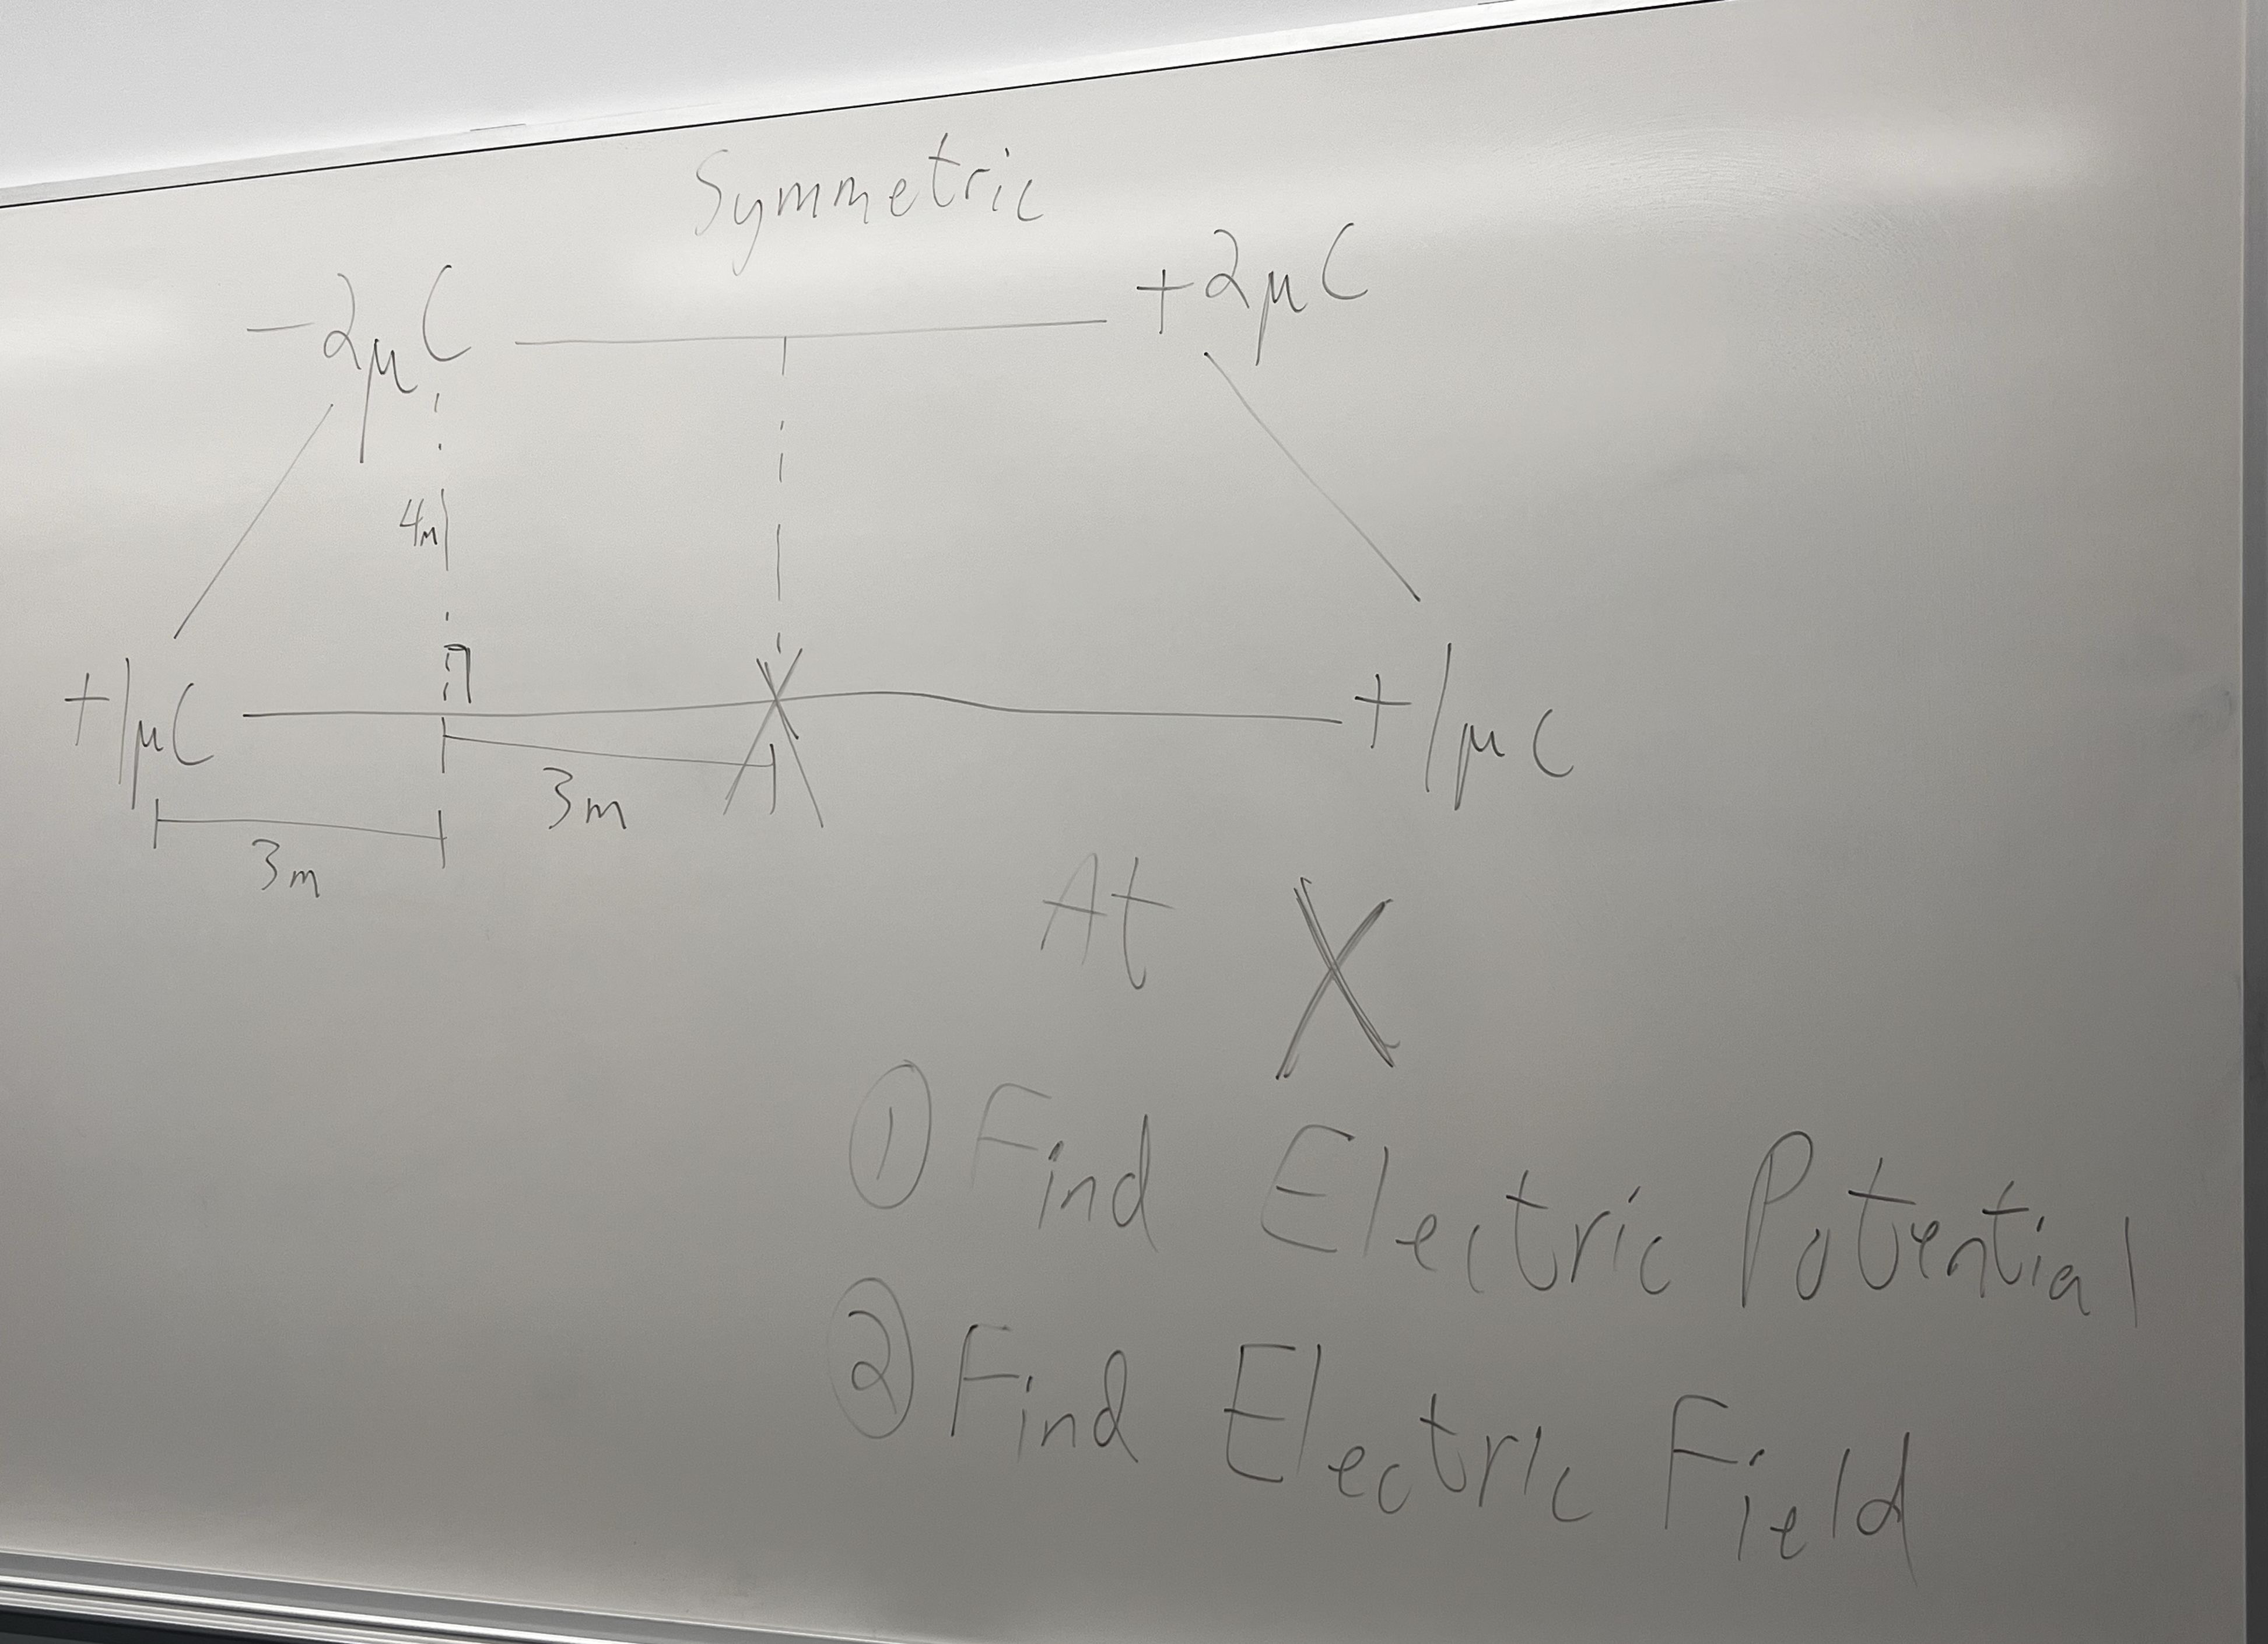 Symmetric
-2μC
+2μC
4m
+1μC
+1μC
3m
3m
At X
① Find Electric Potential
② Find Electric Field